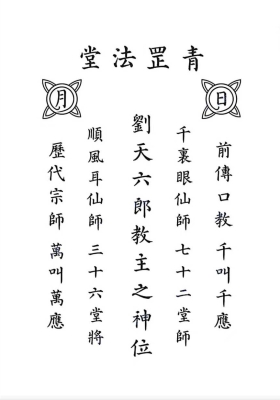 青罡法堂
日
月
前傳口教 千叫千應
千裏眼仙師 七十二堂師
劉天六郎教主之神位
順風耳仙師 三十六堂將
歷代宗師 萬叫萬應